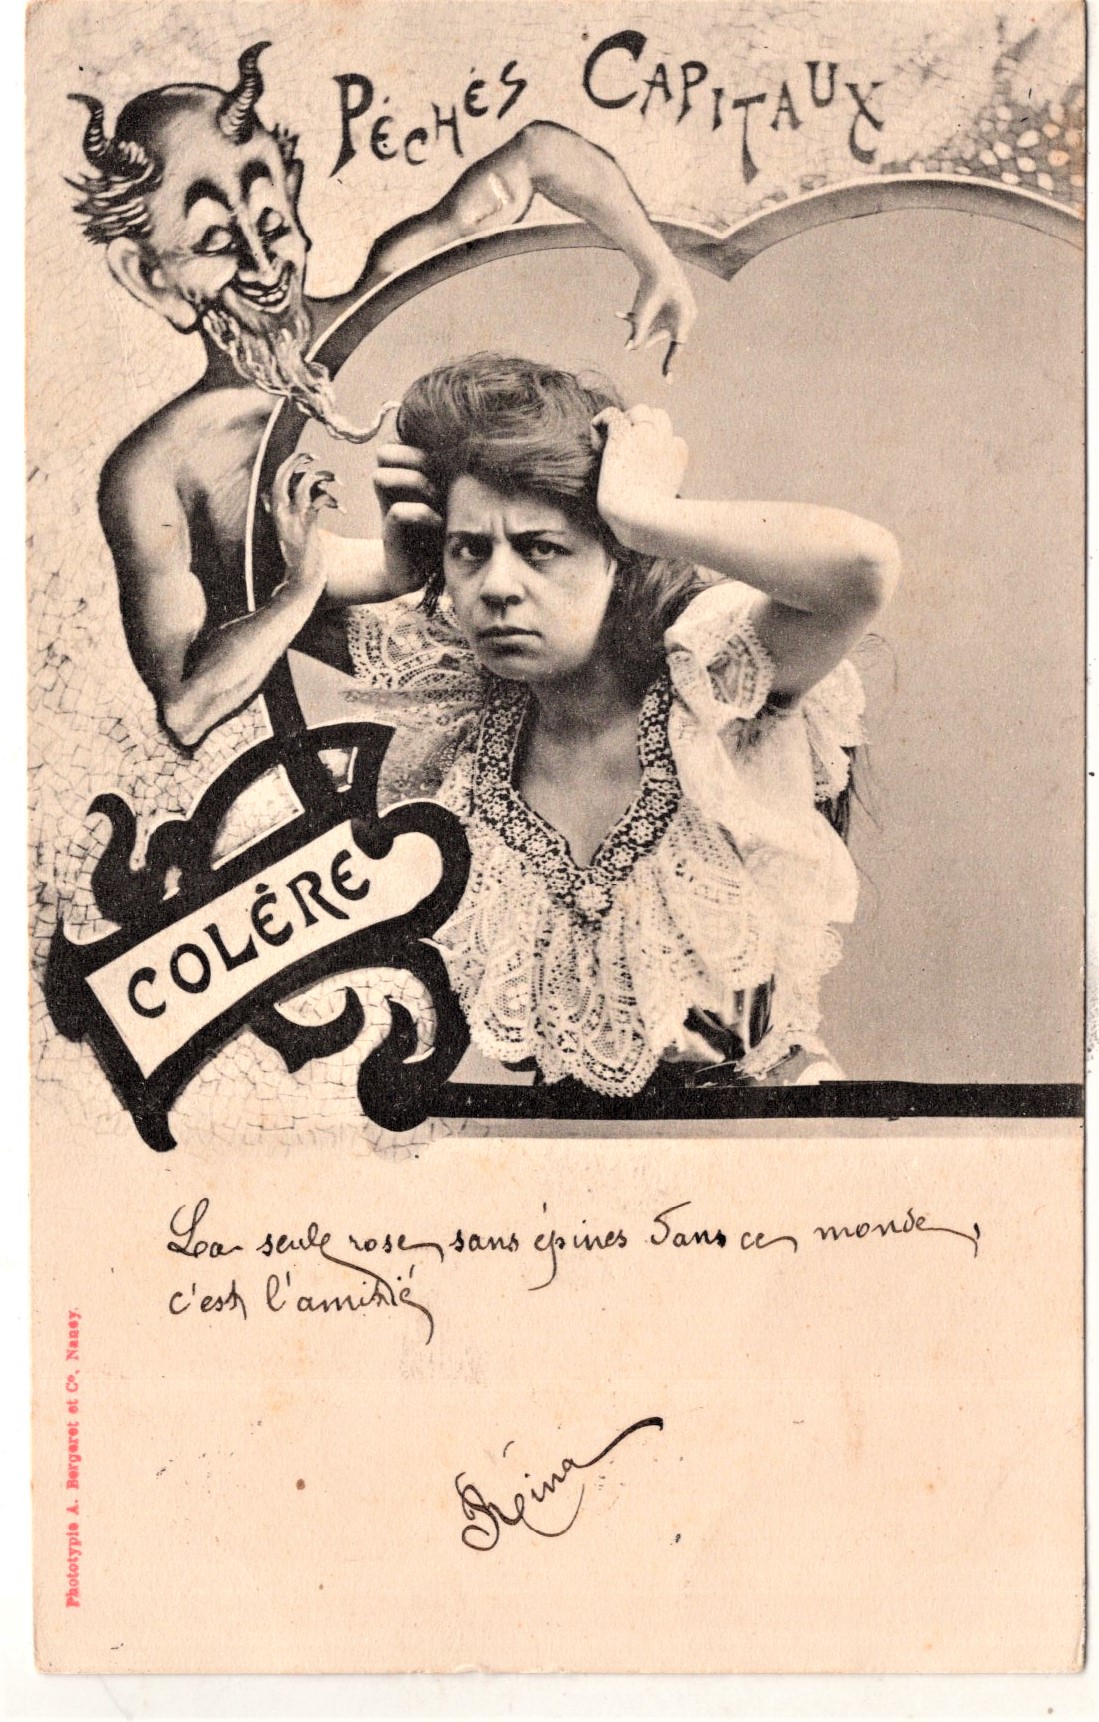 PÉCHÉS CAPITAUX
COLÈRE
La seule rose sans épines dans ce monde,
c'est l'amitié
Réina
Phototypie A. Bergeret et Cº, Nancy.